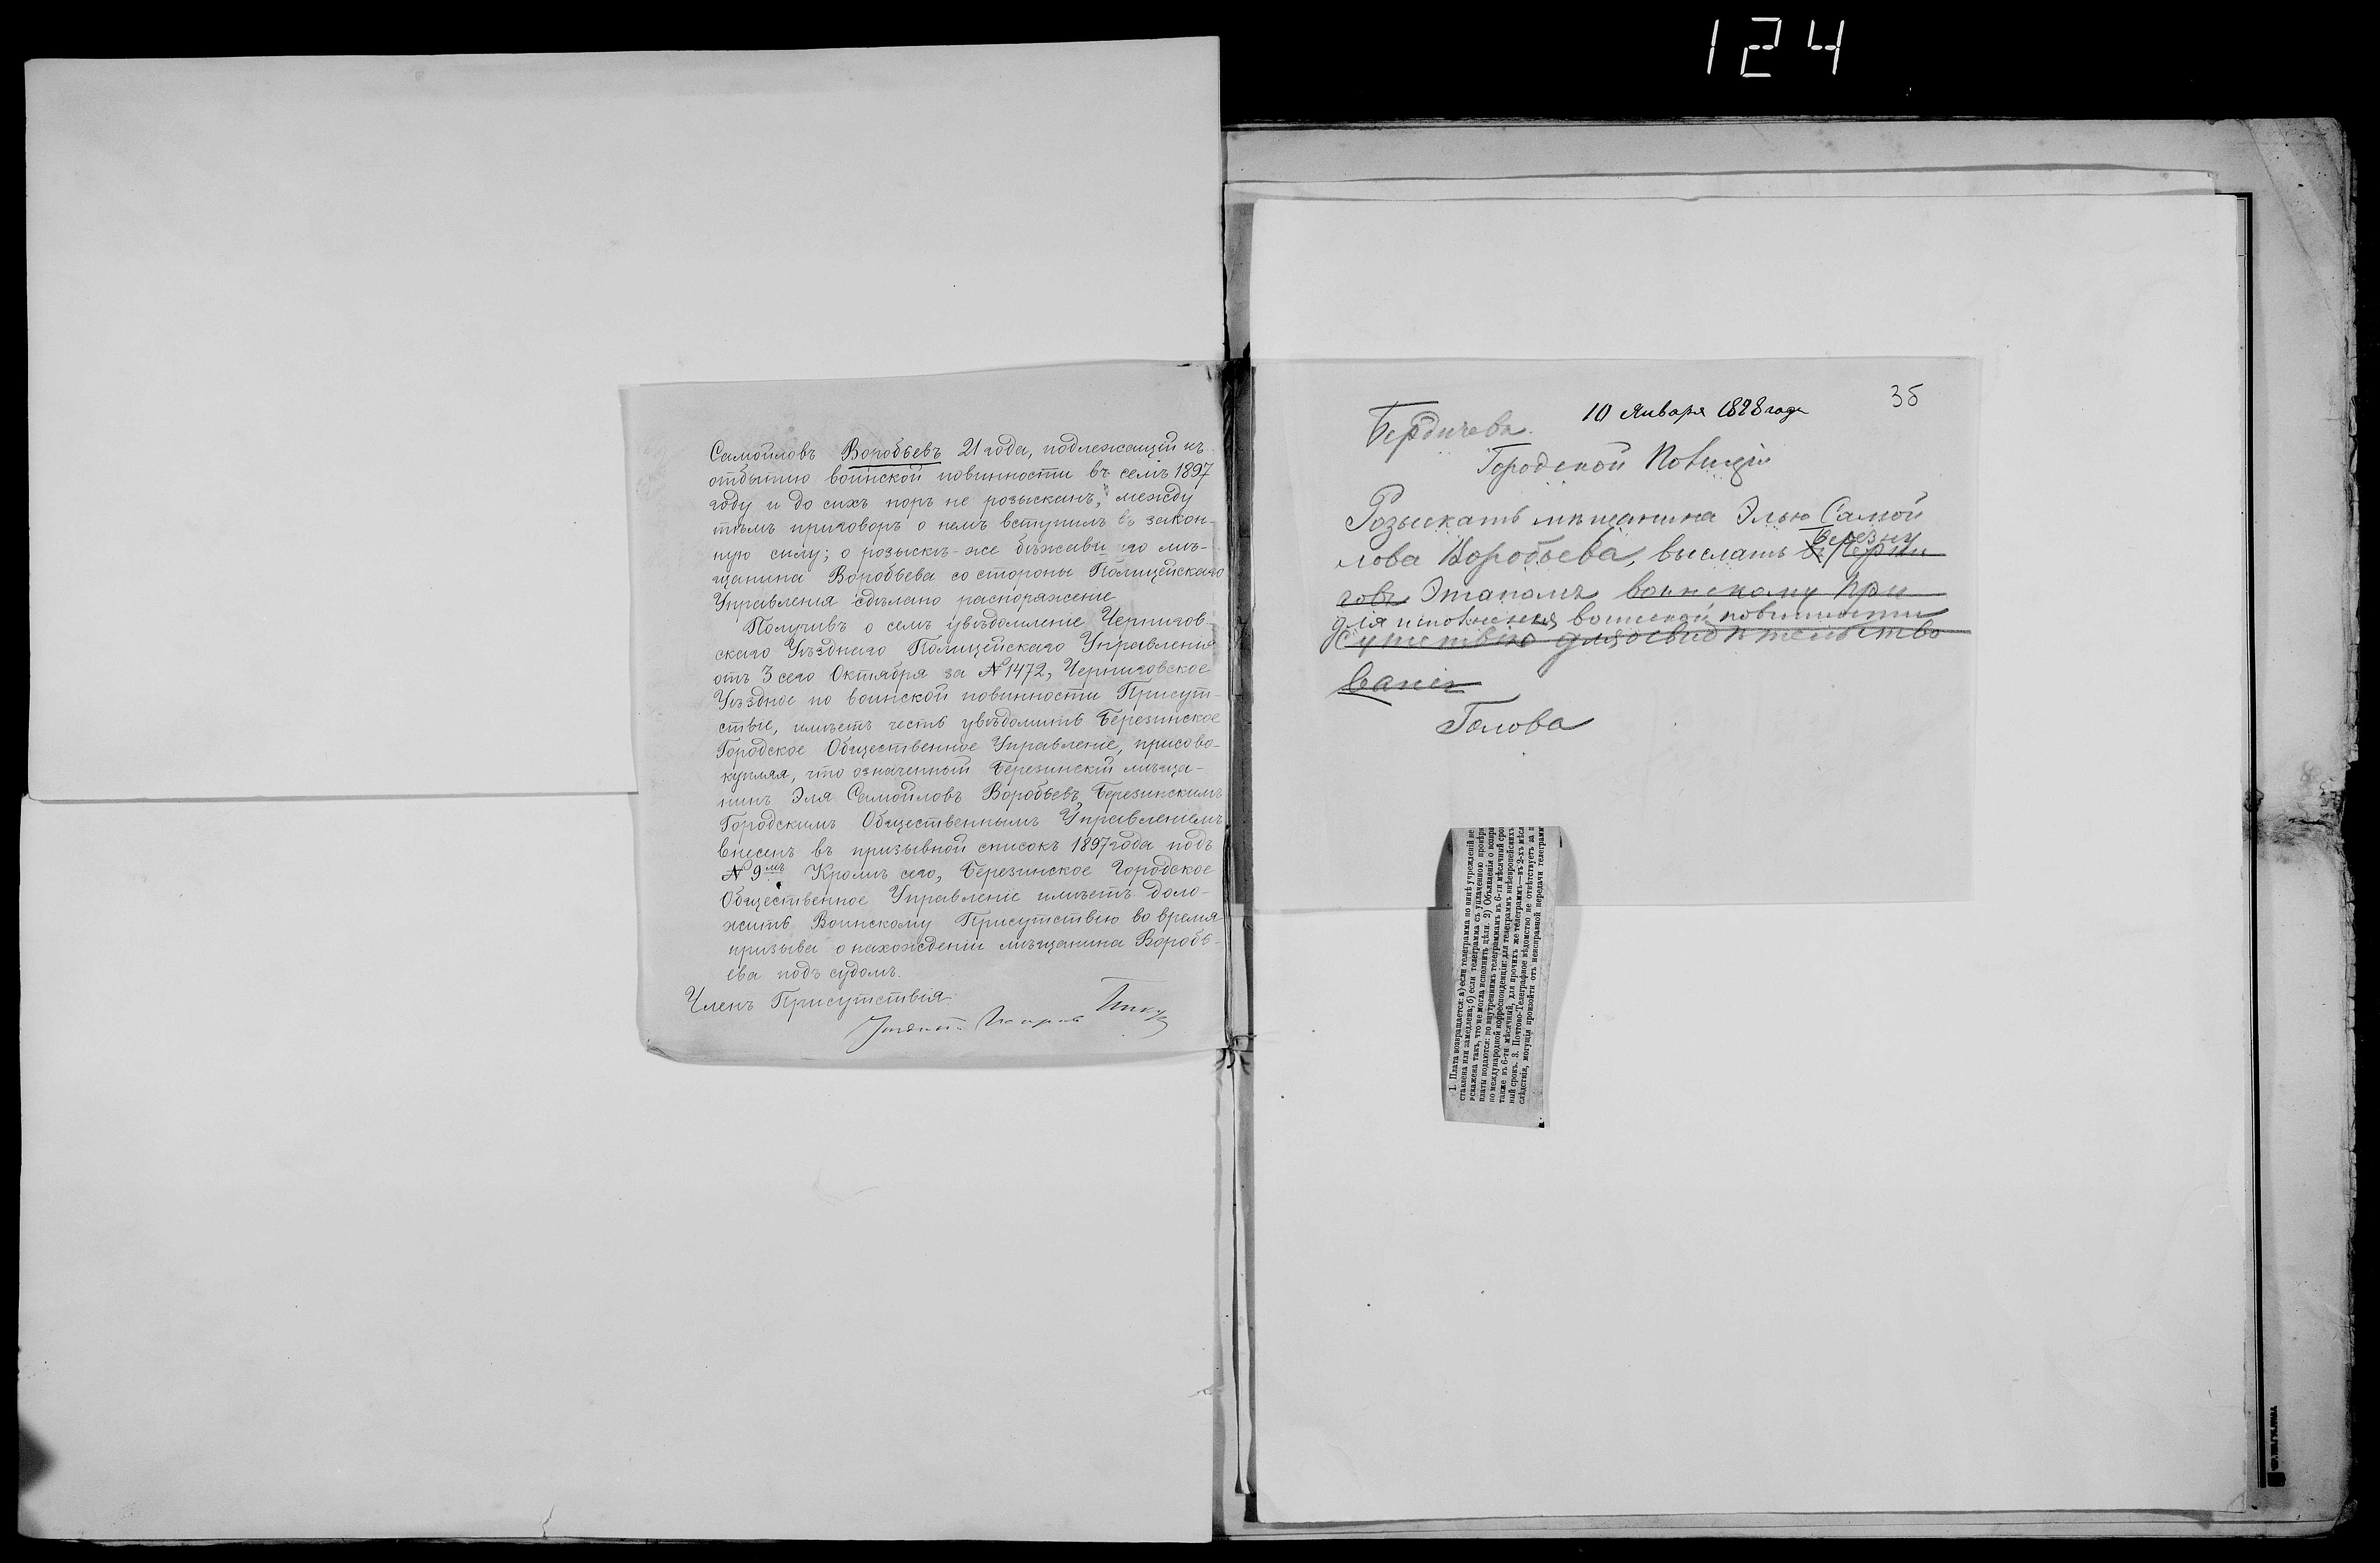 124
Самойловъ Воробьевъ 21 года, подлежащій къ
отбытію воинской повинности въ семъ 1897
году и до сихъ поръ не розысканъ, между
тѣмъ приговоръ о немъ вступилъ въ закон-
ную силу; о розыскѣ-же бѣжавшаго мѣ-
щанина Воробьева со стороны Полицейскаго
Управленія сдѣлано распоряженіе
Получивъ о семъ увѣдомленіе Чернигов-
скаго Уѣзднаго Полицейскаго Управленія
отъ 3 сего Октября за № 1472, Черниговское
Уѣздное по воинской повинности Присут-
ствіе, имѣетъ честь увѣдомить Березинское
Городское Общественное Управленіе, присово-
купляя, что означенный Березинскій мѣща-
нинъ Эля Самойловъ Воробьевъ, Березинскимъ
Городскимъ Общественнымъ Управленіемъ
внесенъ въ призывной списокъ 1897 года подъ
№ 9мъ Кромѣ сего, Березинское Городское
Общественное Управленіе имѣетъ доло-
жить Воинскому Присутствію во время
призыва о нахожденіи мѣщанина Воробь-
ева подъ судомъ.
Членъ Присутствія:
35
10 Января 1898 года
Бердичевъ.
Городской Полиціи
Розыскать мѣщанина Элью Самой
Березну
лова Воробьева, выслать въ Черни
говъ Этапомъ воинскому При
для исполненія воинской повинности
сутствію для освидѣтельство
ванія
Голова
1. Плата возвращается: а) если телеграмма по винѣ учрежденій не
ставлена или замедлена; б) если телеграмма съ уплаченною провѣрк
искажена такъ, что не могла исполнить цѣли. 2) Объявленія о возвра
платы подаются: по внутреннимъ телеграммамъ въ 6-ти мѣсячный сро
по международной корреспонденціи: для телеграммъ внѣевропейскихъ
также въ 6-ти мѣсячный, для прочихъ же телеграммъ—въ 2-хъ мѣся
ный срокъ. 3. Почтово-Телеграфное вѣдомство не отвѣтствуетъ за п
слѣдствія, могущія произойти отъ неисправной передачи телеграмм